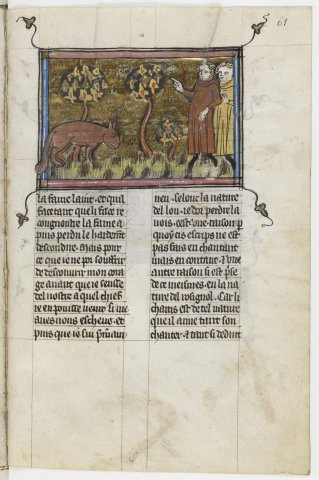 61
la faine lautre · et quil
face tant que li face re
congnoistre la faine a
puis perdu le hardemt
descondire · Mais pour
ce que ie ne poi souffrir
de descouurir mon cora
ge auant que ie seusse
del vostre a quel chief
ie en pouisse uenir si me
aues uous escheuo · et
puis que io lui prumain
neu · selonc la nature
del lou · ie doi perdre la
uois · cest vne raison p
quoy cis escrips ne est
pas fais en chantant
mais en contant · & vne
autre raison si est prise
de ce meismes · en la na
ture del rosignol · Car li
chans est de tel nature
que il aime tant son
chanter · & tant si deduit